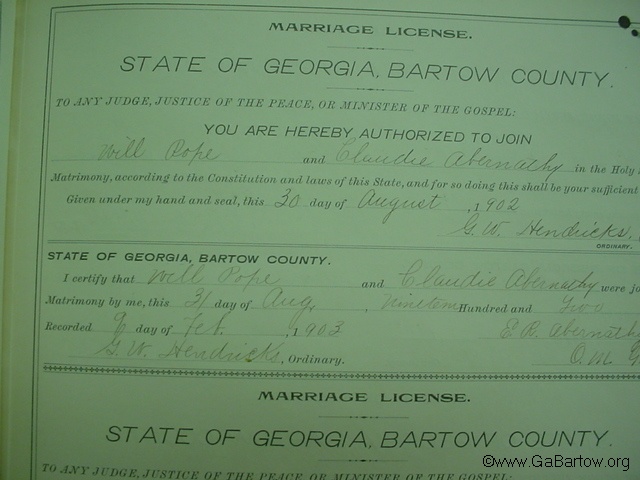 MARRIAGE LICENSE.
STATE OF GEORGIA, BARTOW COUNTY.
TO ANY JUDGE, JUSTICE OF THE PEACE, OR MINISTER OF THE GOSPEL:
YOU ARE HEREBY AUTHORIZED TO JOIN
Will Pope and Claudie Abernathy in the Holy
Matrimony, according to the Constitution and laws of this State, and for so doing this shall be your sufficient
Given under my hand and seal, this 30 day of August, 1902
G. W. Hendricks,
ORDINARY.
STATE OF GEORGIA, BARTOW COUNTY.
I certify that Will Pope and Claudie Abernathy were jo
Matrimony by me, this 31 day of Aug, Nineteen Hundred and Two
Recorded 9 day of Feb, 1903 E. R. Abernath
G. W. Hendricks, Ordinary. O. M. G
MARRIAGE LICENSE.
STATE OF GEORGIA, BARTOW COUNTY.
TO ANY JUDGE, JUSTICE OF THE PEACE, OR MINISTER OF THE GOSPEL:
©www.GaBartow.org